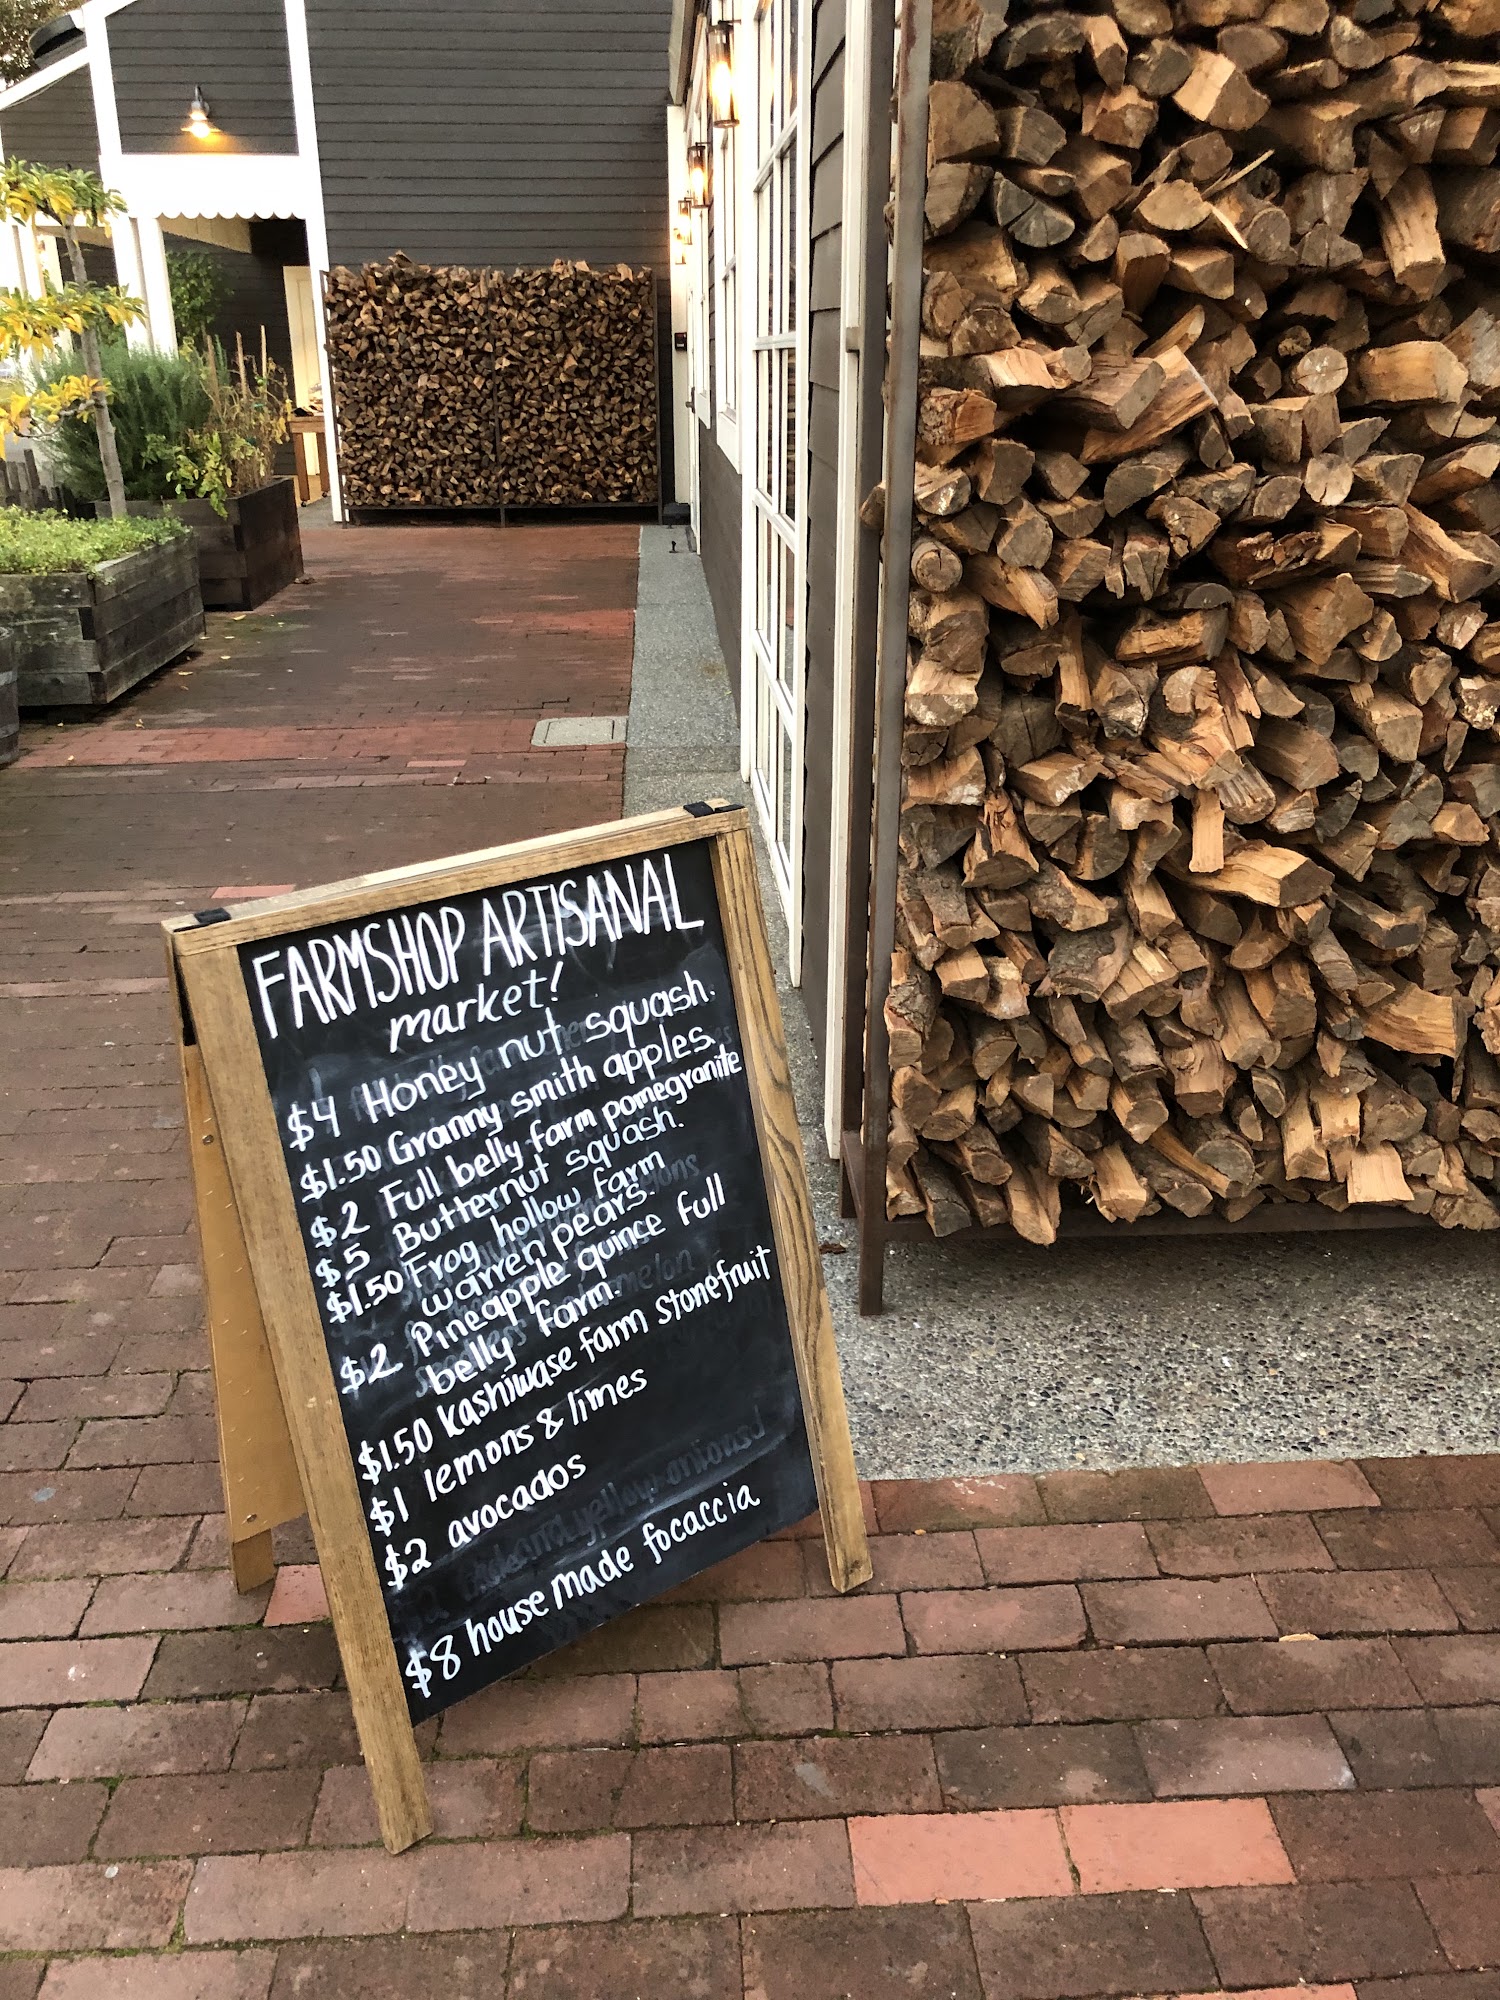 FARMSHOP ARTISANAL
market!
$4 Honey nut squash.
$1.50 Granny smith apples.
$2 Full belly farm pomegranite
$5 Butternut squash.
$1.50 Frog hollow farm
warren pears.
$2 Pineapple quince full
belly farm.
$1.50 kashiwase farm stonefruit
$1 lemons & limes
$2 avocados
$8 house made focaccia